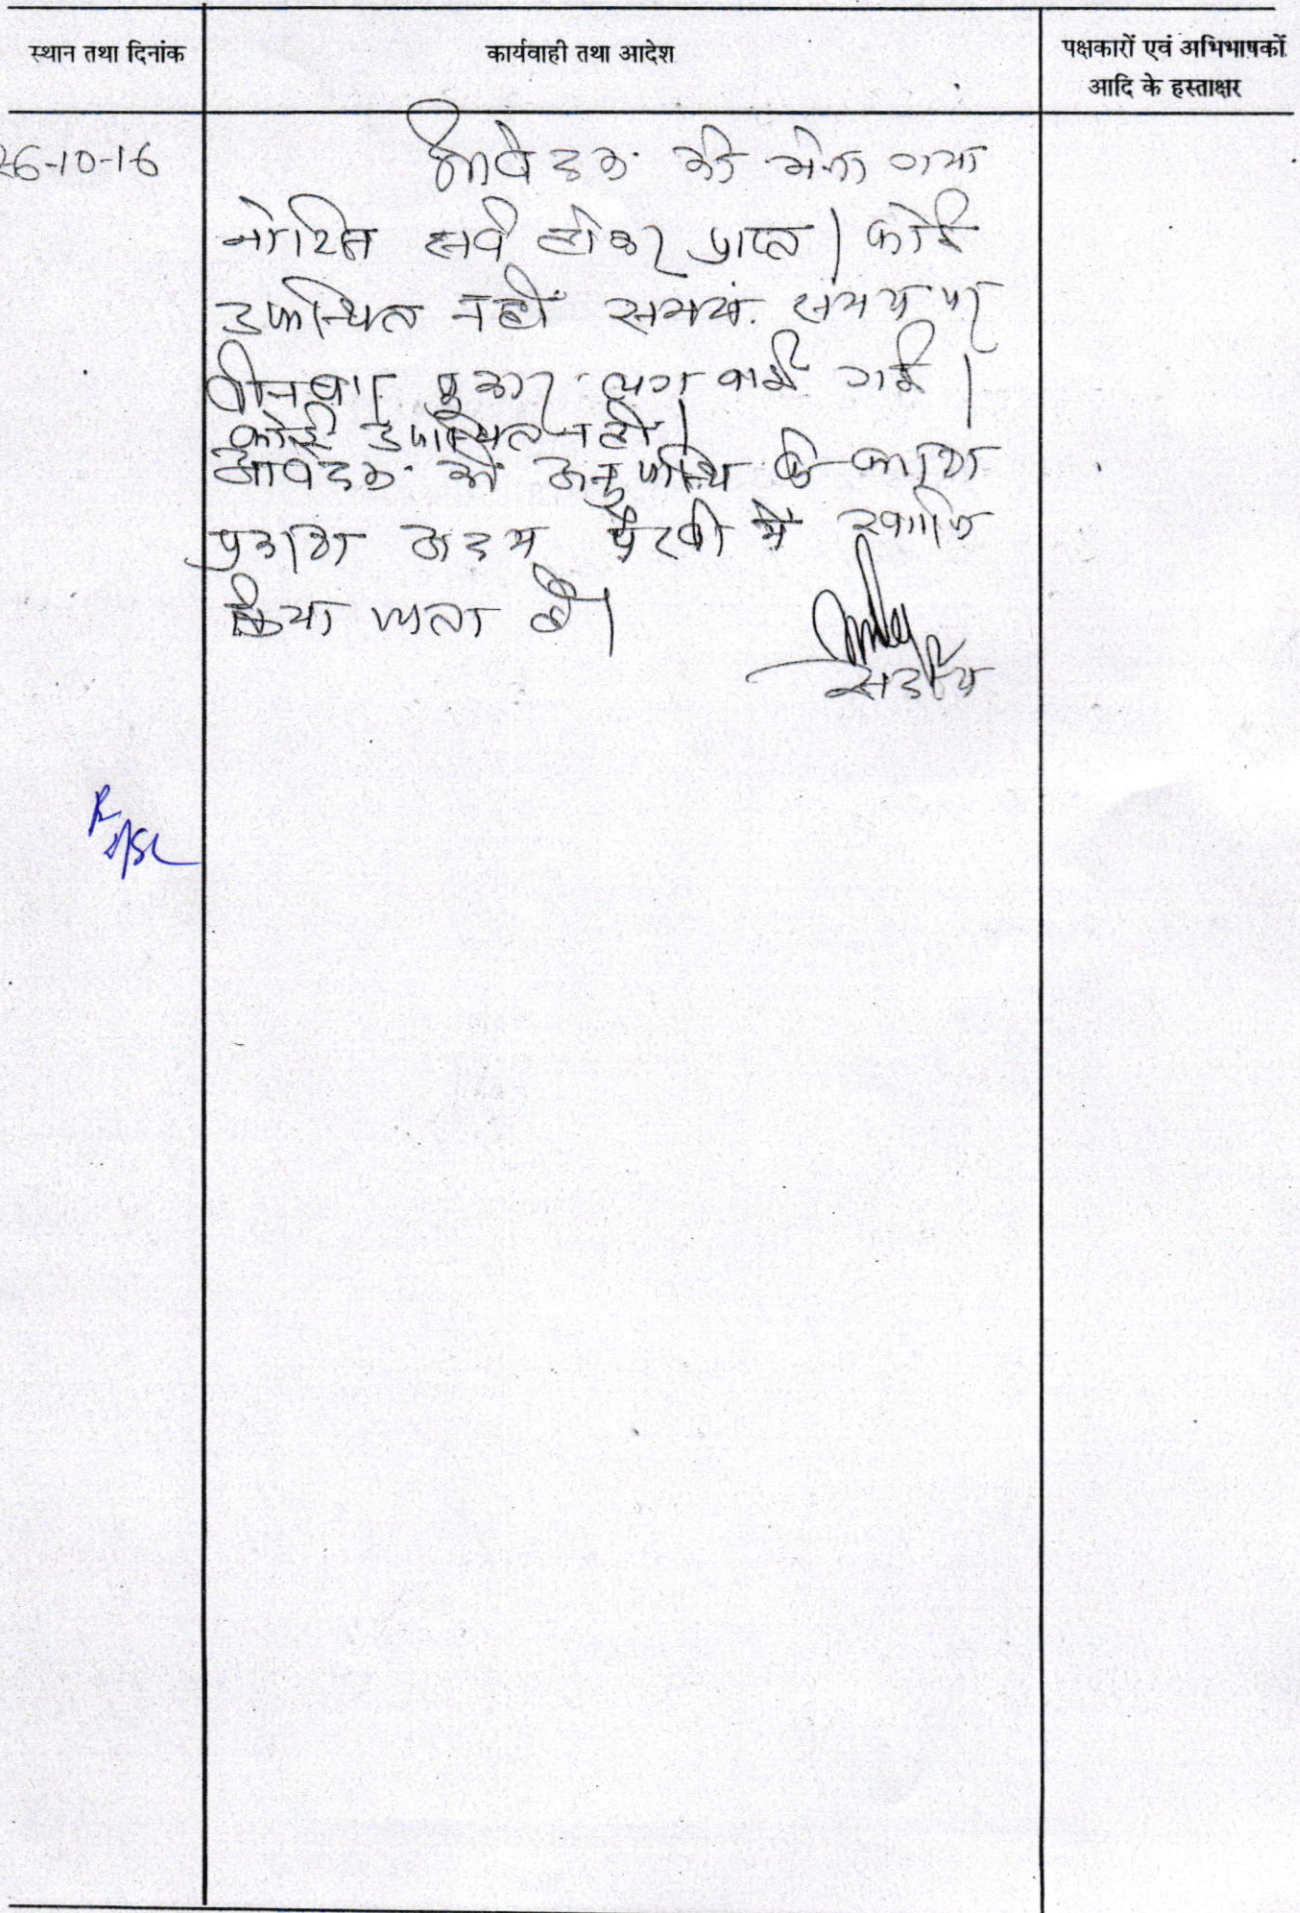 स्थान तथा दिनांक
कार्यवाही तथा आदेश
पक्षकारों एवं अभिभाषकों
आदि के हस्ताक्षर
26-10-16
आवेदक को भेजा गया
नोटिस सर्व होकर प्राप्त। कोई
उपस्थित नहीं समय समय पर
तीन बार पुकार लगवाई गई।
कोई उपस्थित नहीं।
आवेदक की अनुपस्थि के कारण
प्रकरण अदम पैरवी में
किया जाता है।
सदस्य